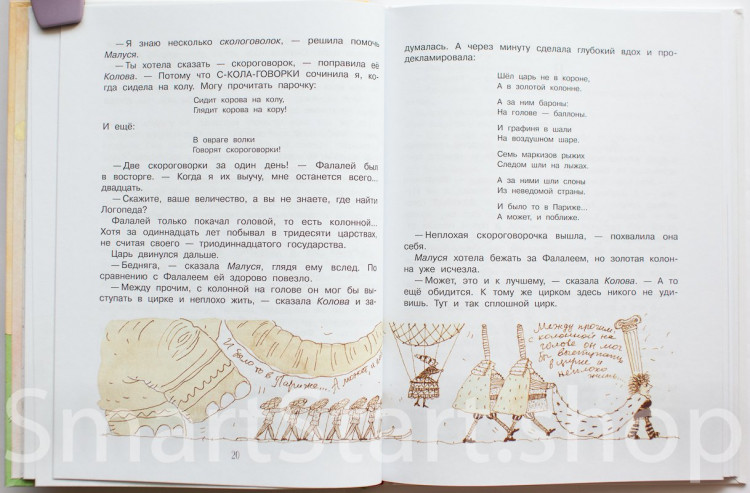 — Я знаю несколько скологоволок, — решила помочь
Малуся.
— Ты хотела сказать — скороговорок, — поправила её
Колова. — Потому что С-КОЛА-ГОВОРКИ сочинила я, ко-
гда сидела на колу. Могу прочитать парочку:
Сидит корова на колу,
Глядит корова на кору!
И ещё:
В овраге волки
Говорят скороговорки!
— Две скороговорки за один день! — Фалалей был
в восторге. — Когда я их выучу, мне останется всего...
двадцать.
— Скажите, ваше величество, а вы не знаете, где найти
Логопеда?
Фалалей только покачал головой, то есть колонной...
Хотя за одиннадцать лет побывал в тридесяти царствах,
не считая своего — триодиннадцатого государства.
Царь двинулся дальше.
— Бедняга, — сказала Малуся, глядя ему вслед. По
сравнению с Фалалеем ей здорово повезло.
— Между прочим, с колонной на голове он мог бы вы-
ступать в цирке и неплохо жить, — сказала Колова и за-
И было то в Париже... А может, и
20
думалась. А через минуту сделала глубокий вдох и про-
декламировала:
Шёл царь не в короне,
А в золотой колонне.
А за ним бароны:
На голове — баллоны.
И графиня в шали
На воздушном шаре.
Семь маркизов рыжих
Следом шли на лыжах.
А за ними шли слоны
Из неведомой страны.
И было то в Париже...
А может, и поближе.
— Неплохая скороговорочка вышла, — похвалила она
себя.
Малуся хотела бежать за Фалалеем, но золотая колон-
на уже исчезла.
— Может, это и к лучшему, — сказала Колова. — А то
ещё обидится. К тому же цирком здесь никого не уди-
вишь. Тут и так сплошной цирк.
Между прочим,
с колонной на
голове он мог
бы выступать
в цирке и
неплохо
жить.
SmartStart.shop